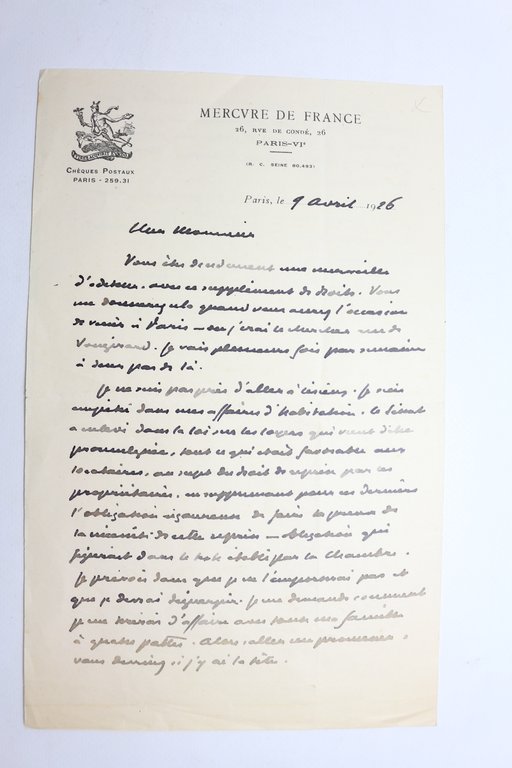 MERCVRE DE FRANCE
26, RVE DE CONDÉ, 26
PARIS-VIe
(R. C. SEINE 80.493)
CHÈQUES POSTAUX
PARIS - 259.31
Paris, le 9 Avril 1926
Cher Monsieur
Vous êtes décidément une merveille
d'éditeur, avec ce supplément de droits. Vous
me donnerez cela quand vous aurez l'occasion
de venir à Paris — ou j'irai le chercher rue de
Vaugirard. Je vais plusieurs fois par semaine
à deux pas de là.
Je ne suis pas près d'aller à Lisieux. Je suis
dans mes affaires d'habitation. Le Sénat
a enlevé dans la loi sur les loyers qui vient d'être
promulguée, tout ce qui était favorable aux
locataires, au sujet du droit de reprise par les
propriétaires, en supprimant pour ces derniers
l'obligation rigoureuse de faire la preuve de
la nécessité de cette reprise — obligation qui
figurait dans le texte établi par la Chambre.
Je prévois donc que je ne l'emporterai pas et
que je devrai déguerpir. Je me demande comment
je me tirerai d'affaire avec toute ma famille
à quatre pattes. Alors, aller me promener,
vous devinez si j'y ai la tête.